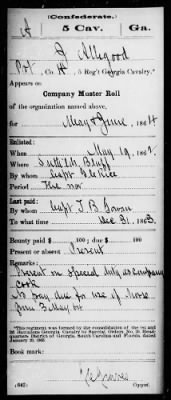 (Confederate.)
A 5 Cav. Ga.
J Allegood
Pvt, Co. H, 5 Reg't Georgia Cavalry.*
Appears on
Company Muster Roll
of the organization named above,
for May & June, 1864
Enlisted:
When May 19, 1862.
Where
By whom Capt
Period The war
Last paid:
By whom Capt T B Gowan
To what time Dec 31, 1863.
Bounty paid $ 100; due $ 100
Present or absent Present
Remarks:
Present on Special duty as Company
Cook
No pay due for use of Horse
*This regiment was formed by the consolidation of the 1st and
2d Battalions Georgia Cavalry by Special Orders, No. 21, Head-
quarters District of Georgia, South Carolina and Florida, dated
January 20, 1863.
Book mark:
(642) Copyist.